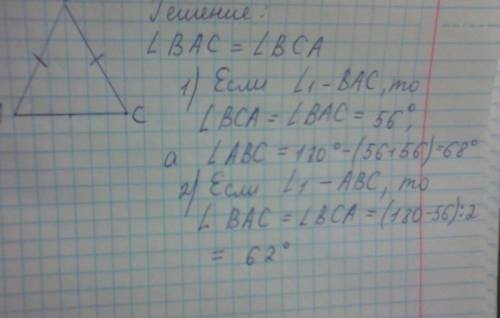 Решение:
∠BAC = ∠BCA
1) Если ∠1 - BAC, то
∠BCA = ∠BAC = 56°,
C
а ∠ABC = 180° - (56+56) = 68°
2) Если ∠1 - ABC, то
∠ BAC = ∠BCA = (180-56):2
= 62°